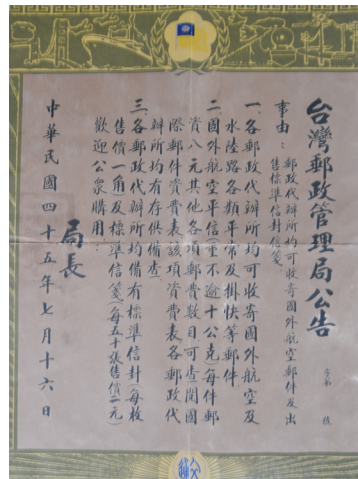 台灣郵政管理局公告
字第　號
事由：郵政代辦所均可收寄國外航空郵件及出
售標準信封信箋
一、各郵政代辦所均可收寄國外航空及
水陸路各類平常及掛快等郵件
二、國外航空平信(重不逾十公克)每件郵
資八元其他各項郵費數目可查閱國
際郵件資費表該項資費表各郵政代
辦所均有存供備查
三、各郵政代辦所均備有標準信封(每枚
售價一角)及標準信箋(每五十張售價二元)
歡迎公眾購用
局長
中華民國四十五年七月十六日